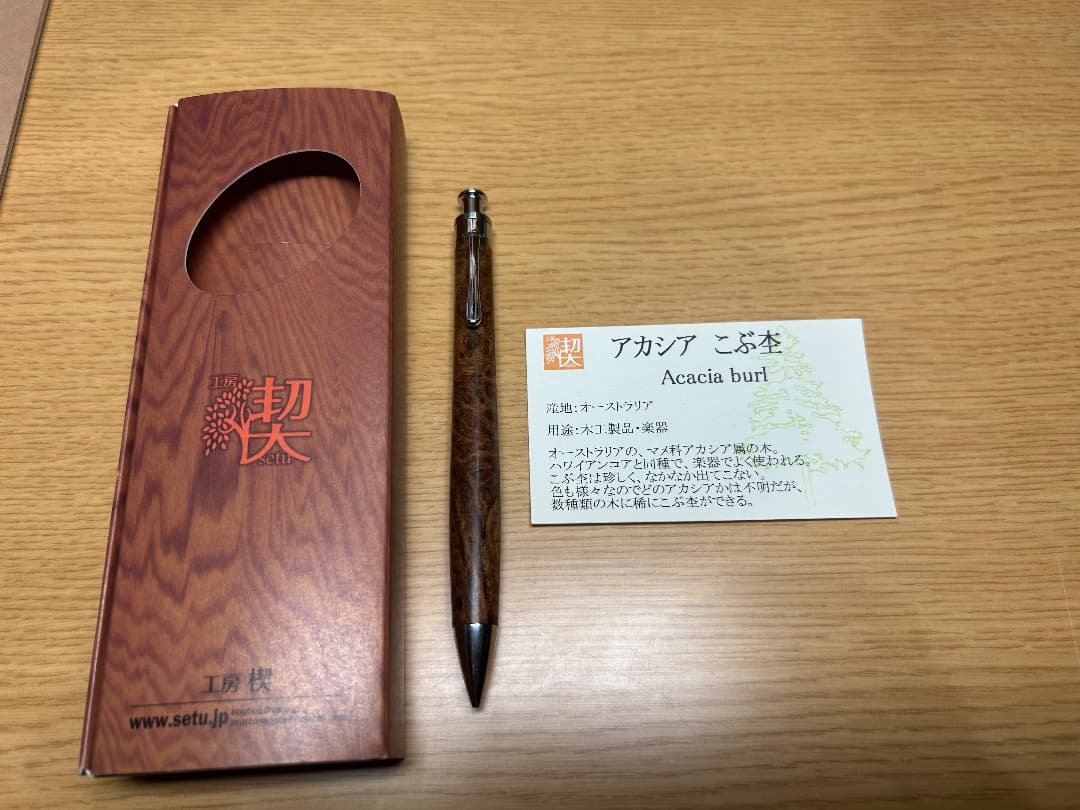 工房
楔
setu
工房 楔
www.setu.jp
工房
楔
アカシア こぶ杢
Acacia burl
産地:オーストラリア
用途:木工製品・楽器
オーストラリアの、マメ科アカシア属の木。
ハワイアンコアと同種で、楽器でよく使われる。
こぶ杢は珍しく、なかなか出てこない。
色も様々なのでどのアカシアかは不明だが、
数種類の木に稀にこぶ杢ができる。